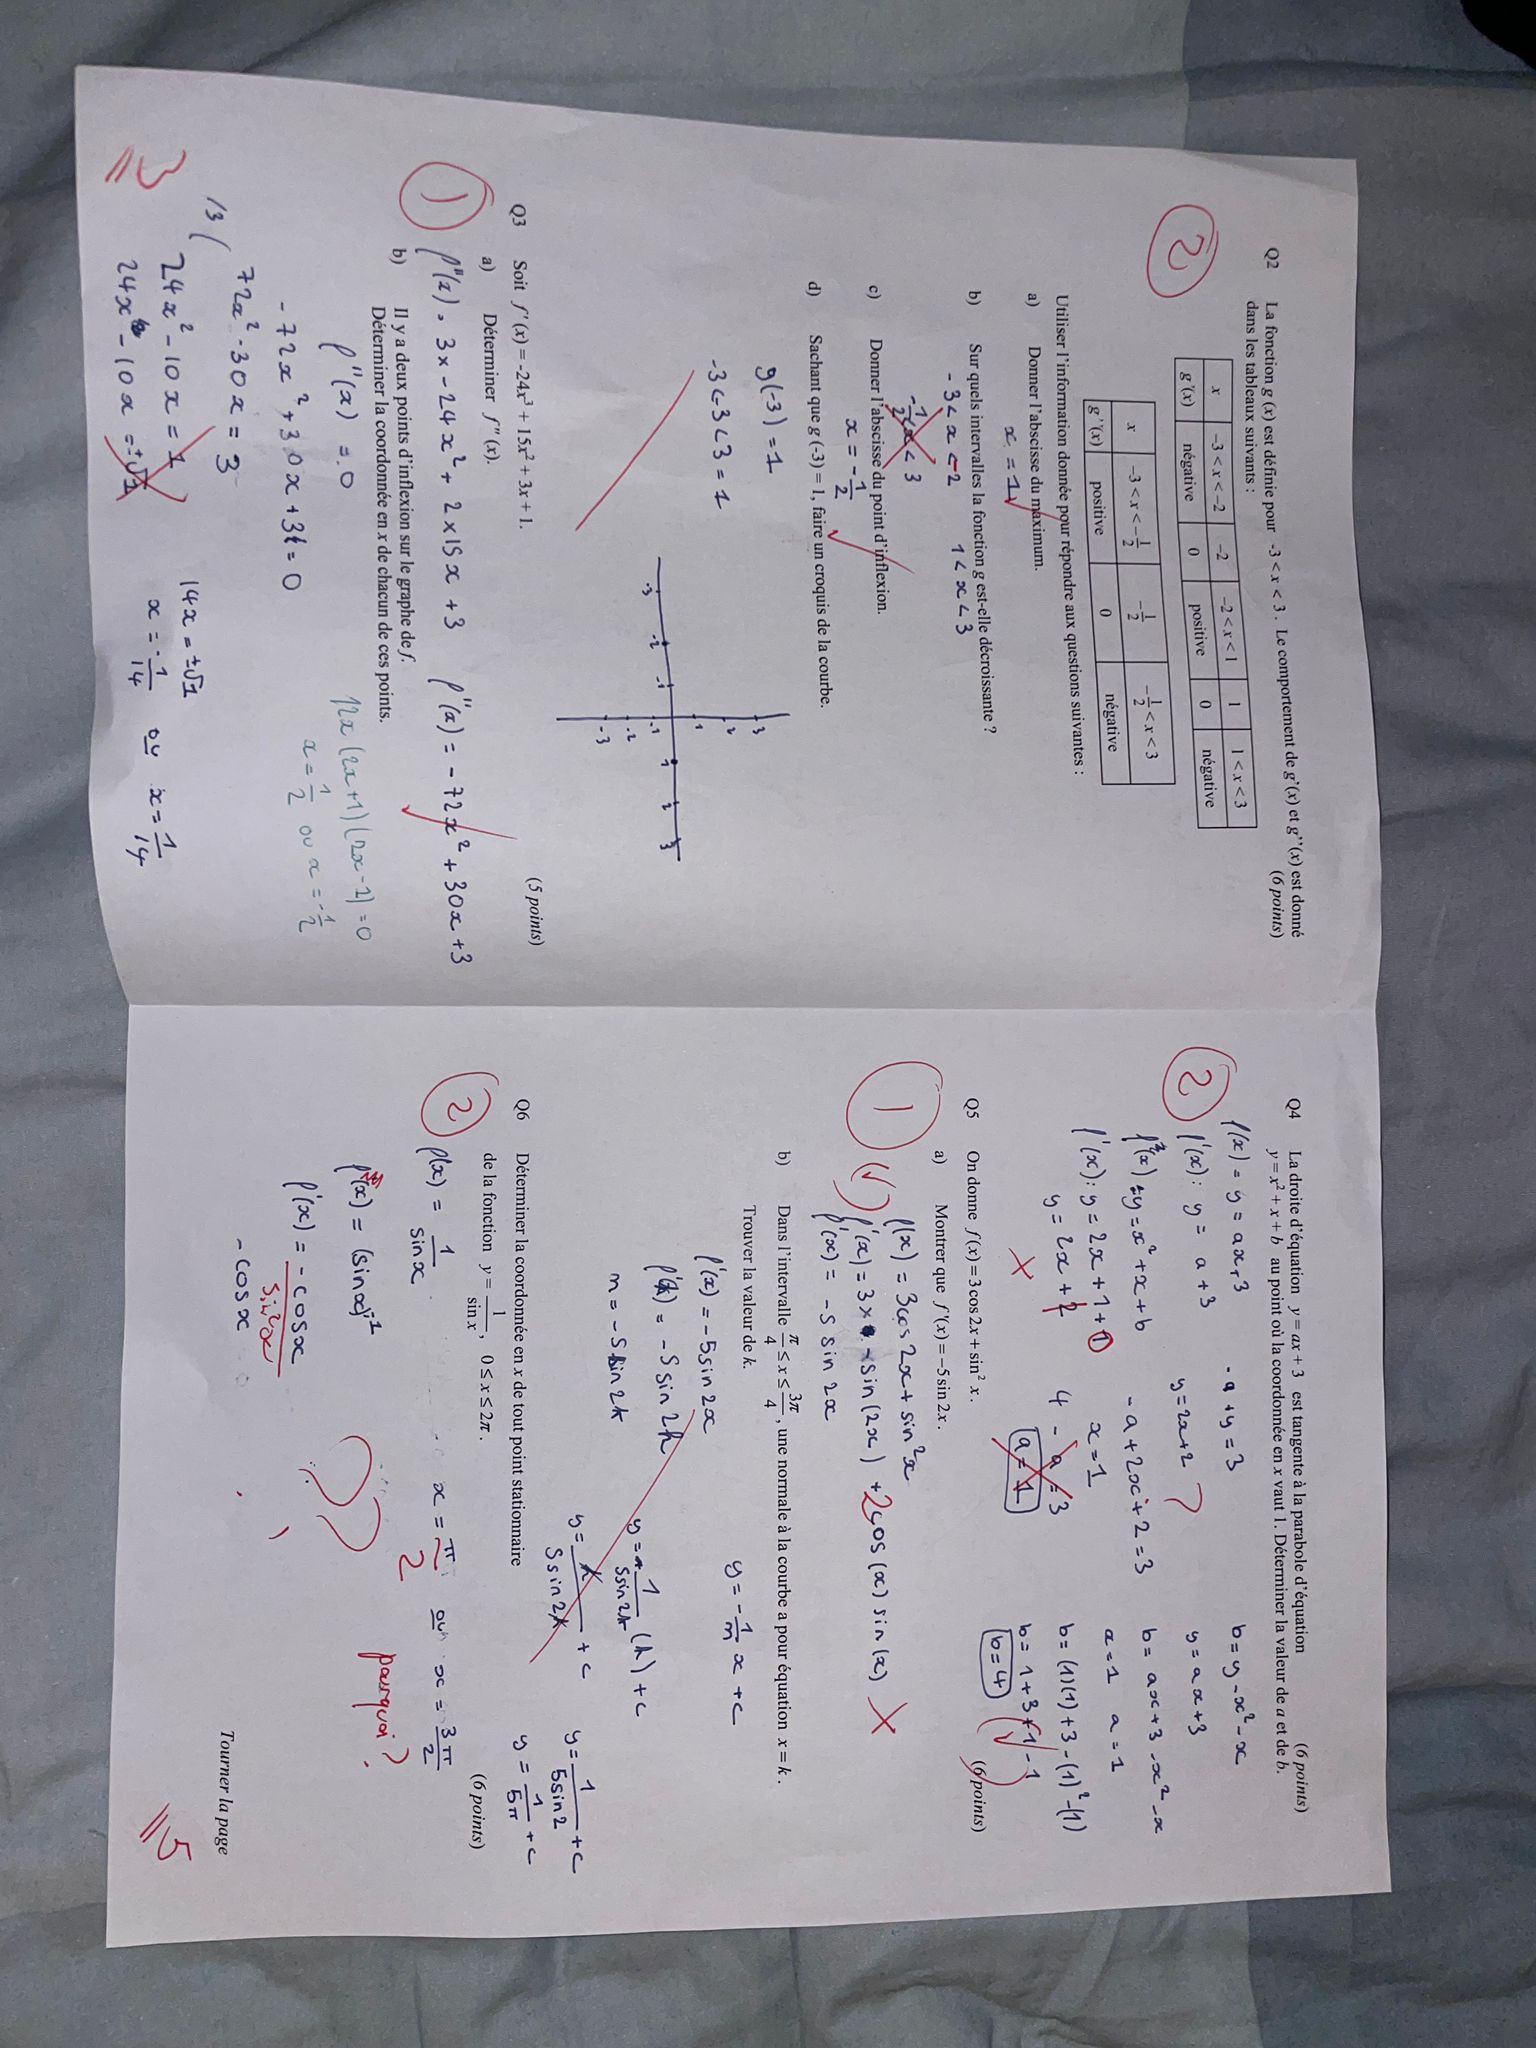 Q2 La fonction g (x) est définie pour -3 < x < 3. Le comportement de g'(x) et g''(x) est donné
dans les tableaux suivants : (6 points)
2
x -3 < x < -2 -2 -2 < x < 1 1 1 < x < 3
g'(x) négative 0 positive 0 négative
x -3 < x < -1/2 -1/2 -1/2 < x < 3
g''(x) positive 0 négative
Utiliser l'information donnée pour répondre aux questions suivantes :
a) Donner l'abscisse du maximum.
x = 1
b) Sur quels intervalles la fonction g est-elle décroissante ?
-3 < x < -2 1 < x < 3
-1/2 < x < 3
c) Donner l'abscisse du point d'inflexion.
x = -1/2
d) Sachant que g (-3) = 1, faire un croquis de la courbe.
g(-3) = 1
-3 < -3 < 3 = 1
3
2
1
-3 -2 -1 1 2 3
-1
-2
-3
Q3 Soit f'(x) = -24x³ + 15x² + 3x + 1. (5 points)
a) Déterminer f''(x).
1
f''(x) = 3x - 24x² + 2x15x + 3 f''(x) = -72x² + 30x + 3
b) Il y a deux points d'inflexion sur le graphe de f.
Déterminer la coordonnée en x de chacun de ces points.
f''(x) = 0
12x (2x+1)(2x-1) = 0
x = 1/2 ou x = -1/2
-72x² + 30x + 3 = 0
72x² - 30x = 3
/3
24x² - 10x = 1
24x - 10x = ±√1
14x = ±√1
x = -1/14 ou x = 1/14
Q4 La droite d'équation y = ax + 3 est tangente à la parabole d'équation (6 points)
y = x² + x + b au point où la coordonnée en x vaut 1. Déterminer la valeur de a et de b.
2
f(x) = y = ax + 3
f'(x) : y = a + 3
f²(x) = y = x² + x + b
f'(x) : y = 2x + 1 + 1
y = 2x + 2
-a + y = 3
y = 2x + 2 ?
-a + 2x + 2 = 3
x = 1
4 - a = 3
a = 1
b = y - x² - x
y = ax + 3
b = ax + 3 - x² - x
a = 1 a = 1
b = (1)(1) + 3 - (1)² - (1)
b = 1 + 3 + 1 - 1
b = 4
Q5 On donne f(x) = 3 cos 2x + sin² x. (6 points)
a) Montrer que f'(x) = -5 sin 2x.
1
f(x) = 3cos 2x + sin²x
f'(x) = 3 x - sin(2x) + 2cos(x) sin(x)
f'(x) = -5 sin 2x
b) Dans l'intervalle π/4 ≤ x ≤ 3π/4, une normale à la courbe a pour équation x = k.
Trouver la valeur de k.
f'(x) = -5sin 2x
f'(k) = -5 sin 2k
m = -5 sin 2k
y = -1/m x + c
y = 1/5sin2k (k) + c
y = k/5sin2k + c
y = 1/5sin2 + c
y = 1/5π + c
Q6 Déterminer la coordonnée en x de tout point stationnaire
de la fonction y = 1/sin x, 0 ≤ x ≤ 2π. (6 points)
2
f(x) = 1/sinx
x = π/2 ou x = 3π/2
pourquoi ?
f(x) = (sinx)⁻¹
??
f'(x) = -cosx/sin²x
-cosx
Tourner la page
5